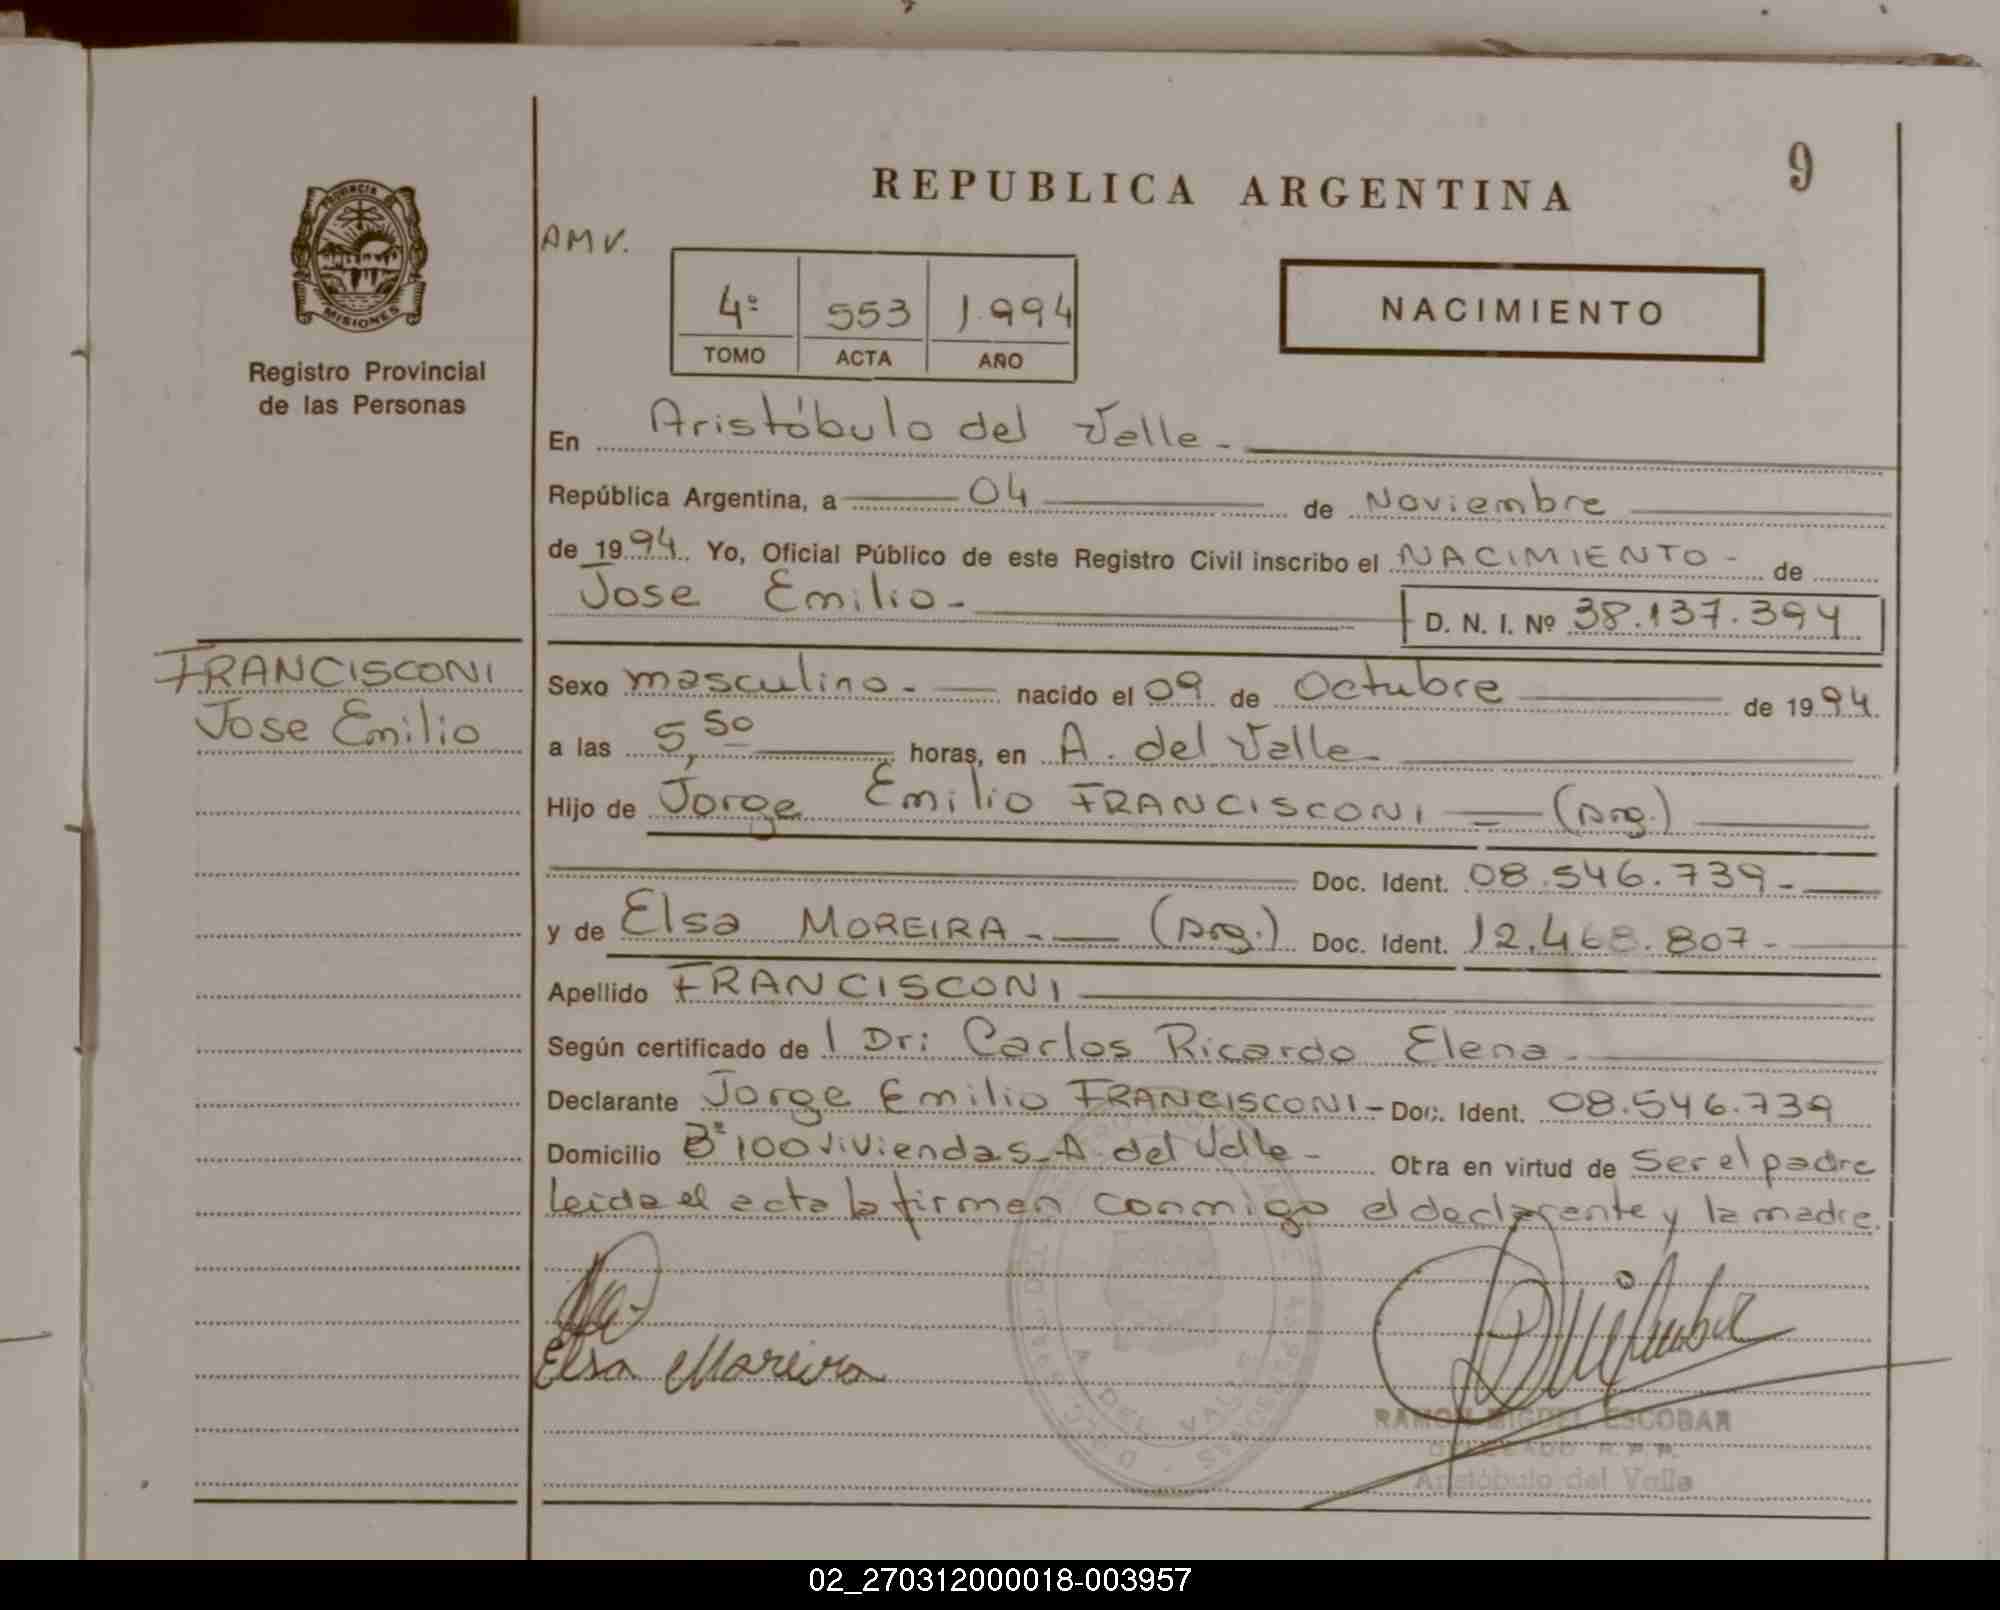 9
REPUBLICA ARGENTINA
AMV.
PROVINCIA
MISIONES
Registro Provincial
de las Personas
4º 553 1.994
TOMO ACTA AÑO
NACIMIENTO
En Aristóbulo del Valle -
República Argentina, a 04 de Noviembre
de 1994 Yo, Oficial Público de este Registro Civil inscribo el NACIMIENTO - de
Jose Emilio - D. N. I. Nº 38.137.394
FRANCISCONI
Jose Emilio
Sexo masculino - nacido el 09 de Octubre de 1994
a las 5,50 horas, en A. del Valle -
Hijo de Jorge Emilio FRANCISCONI (Arg.)
Doc. Ident. 08.546.739 -
y de Elsa MOREIRA - (Arg.) Doc. Ident. 12.468.807 -
Apellido FRANCISCONI
Según certificado de l Dr: Carlos Ricardo Elena -
Declarante Jorge Emilio FRANCISCONI - Doc. Ident. 08.546.739
Domicilio Bº 100 viviendas - A. del Valle - Otra en virtud de Ser el padre
leida el acta la firman conmigo el declarante y la madre.
Elsa Moreira
A. DEL VALLE
RAMON MIGUEL ESCOBAR
DELEGADO R. P. P.
Aristóbulo del Valle
02_270312000018-003957